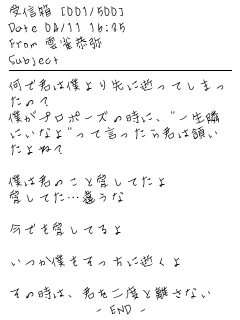 受信箱 [001/500]
Date 04/11 16:35
From 雲雀恭弥
Subject
何で君は僕より先に逝ってしまっ
たの？
僕がプロポーズの時に、"一生隣
にいなよ"って言ったら君は頷い
たよね？
僕は君のこと愛してたよ
愛してた…違うな
今でも愛してるよ
いつか僕もそっちに逝くよ
その時は、君を二度と離さない
- END -